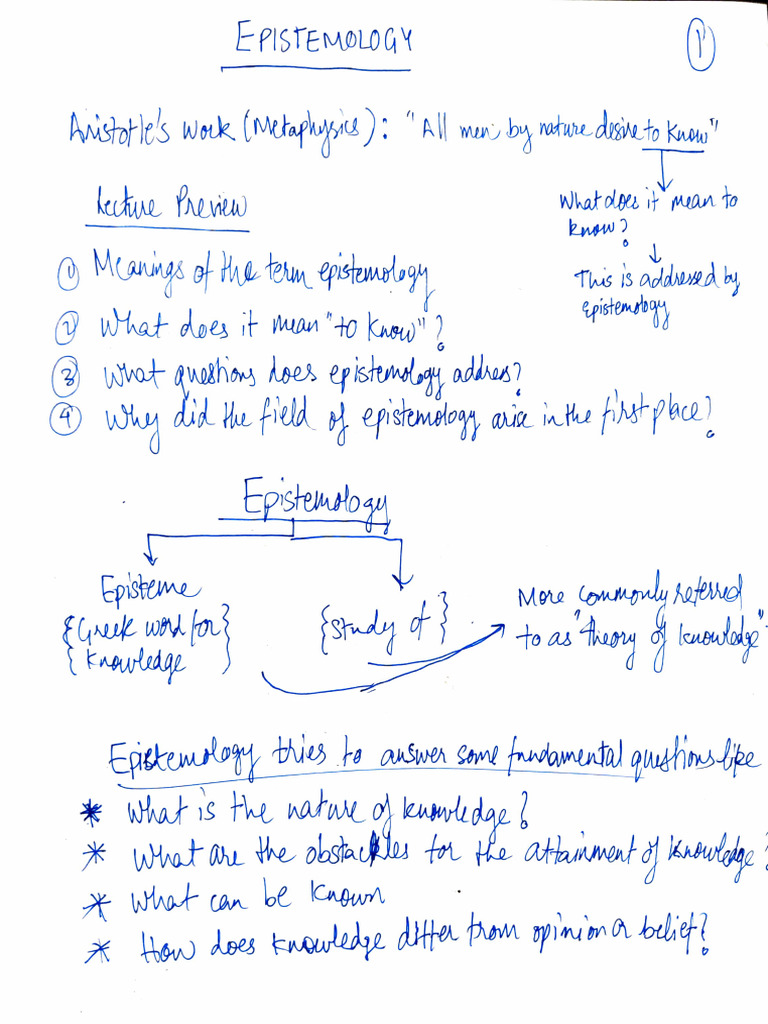 EPISTEMOLOGY
1
Aristotle's work (Metaphysics): "All men by nature desire to know"
What does it mean to
know?
This is addressed by
epistemology
Lecture Preview
1 Meanings of the term epistemology
2 What does it mean "to know"?
3 What questions does epistemology address?
4 Why did the field of epistemology arise in the first place?
Epistemology
Episteme
{Greek word for}
{knowledge}
{study of}
More commonly referred
to as "theory of knowledge"
Epistemology tries to answer some fundamental questions like
* What is the nature of knowledge?
* What are the obstackles for the attainment of knowledge?
* What can be known
* How does knowledge differ from opinion or belief?